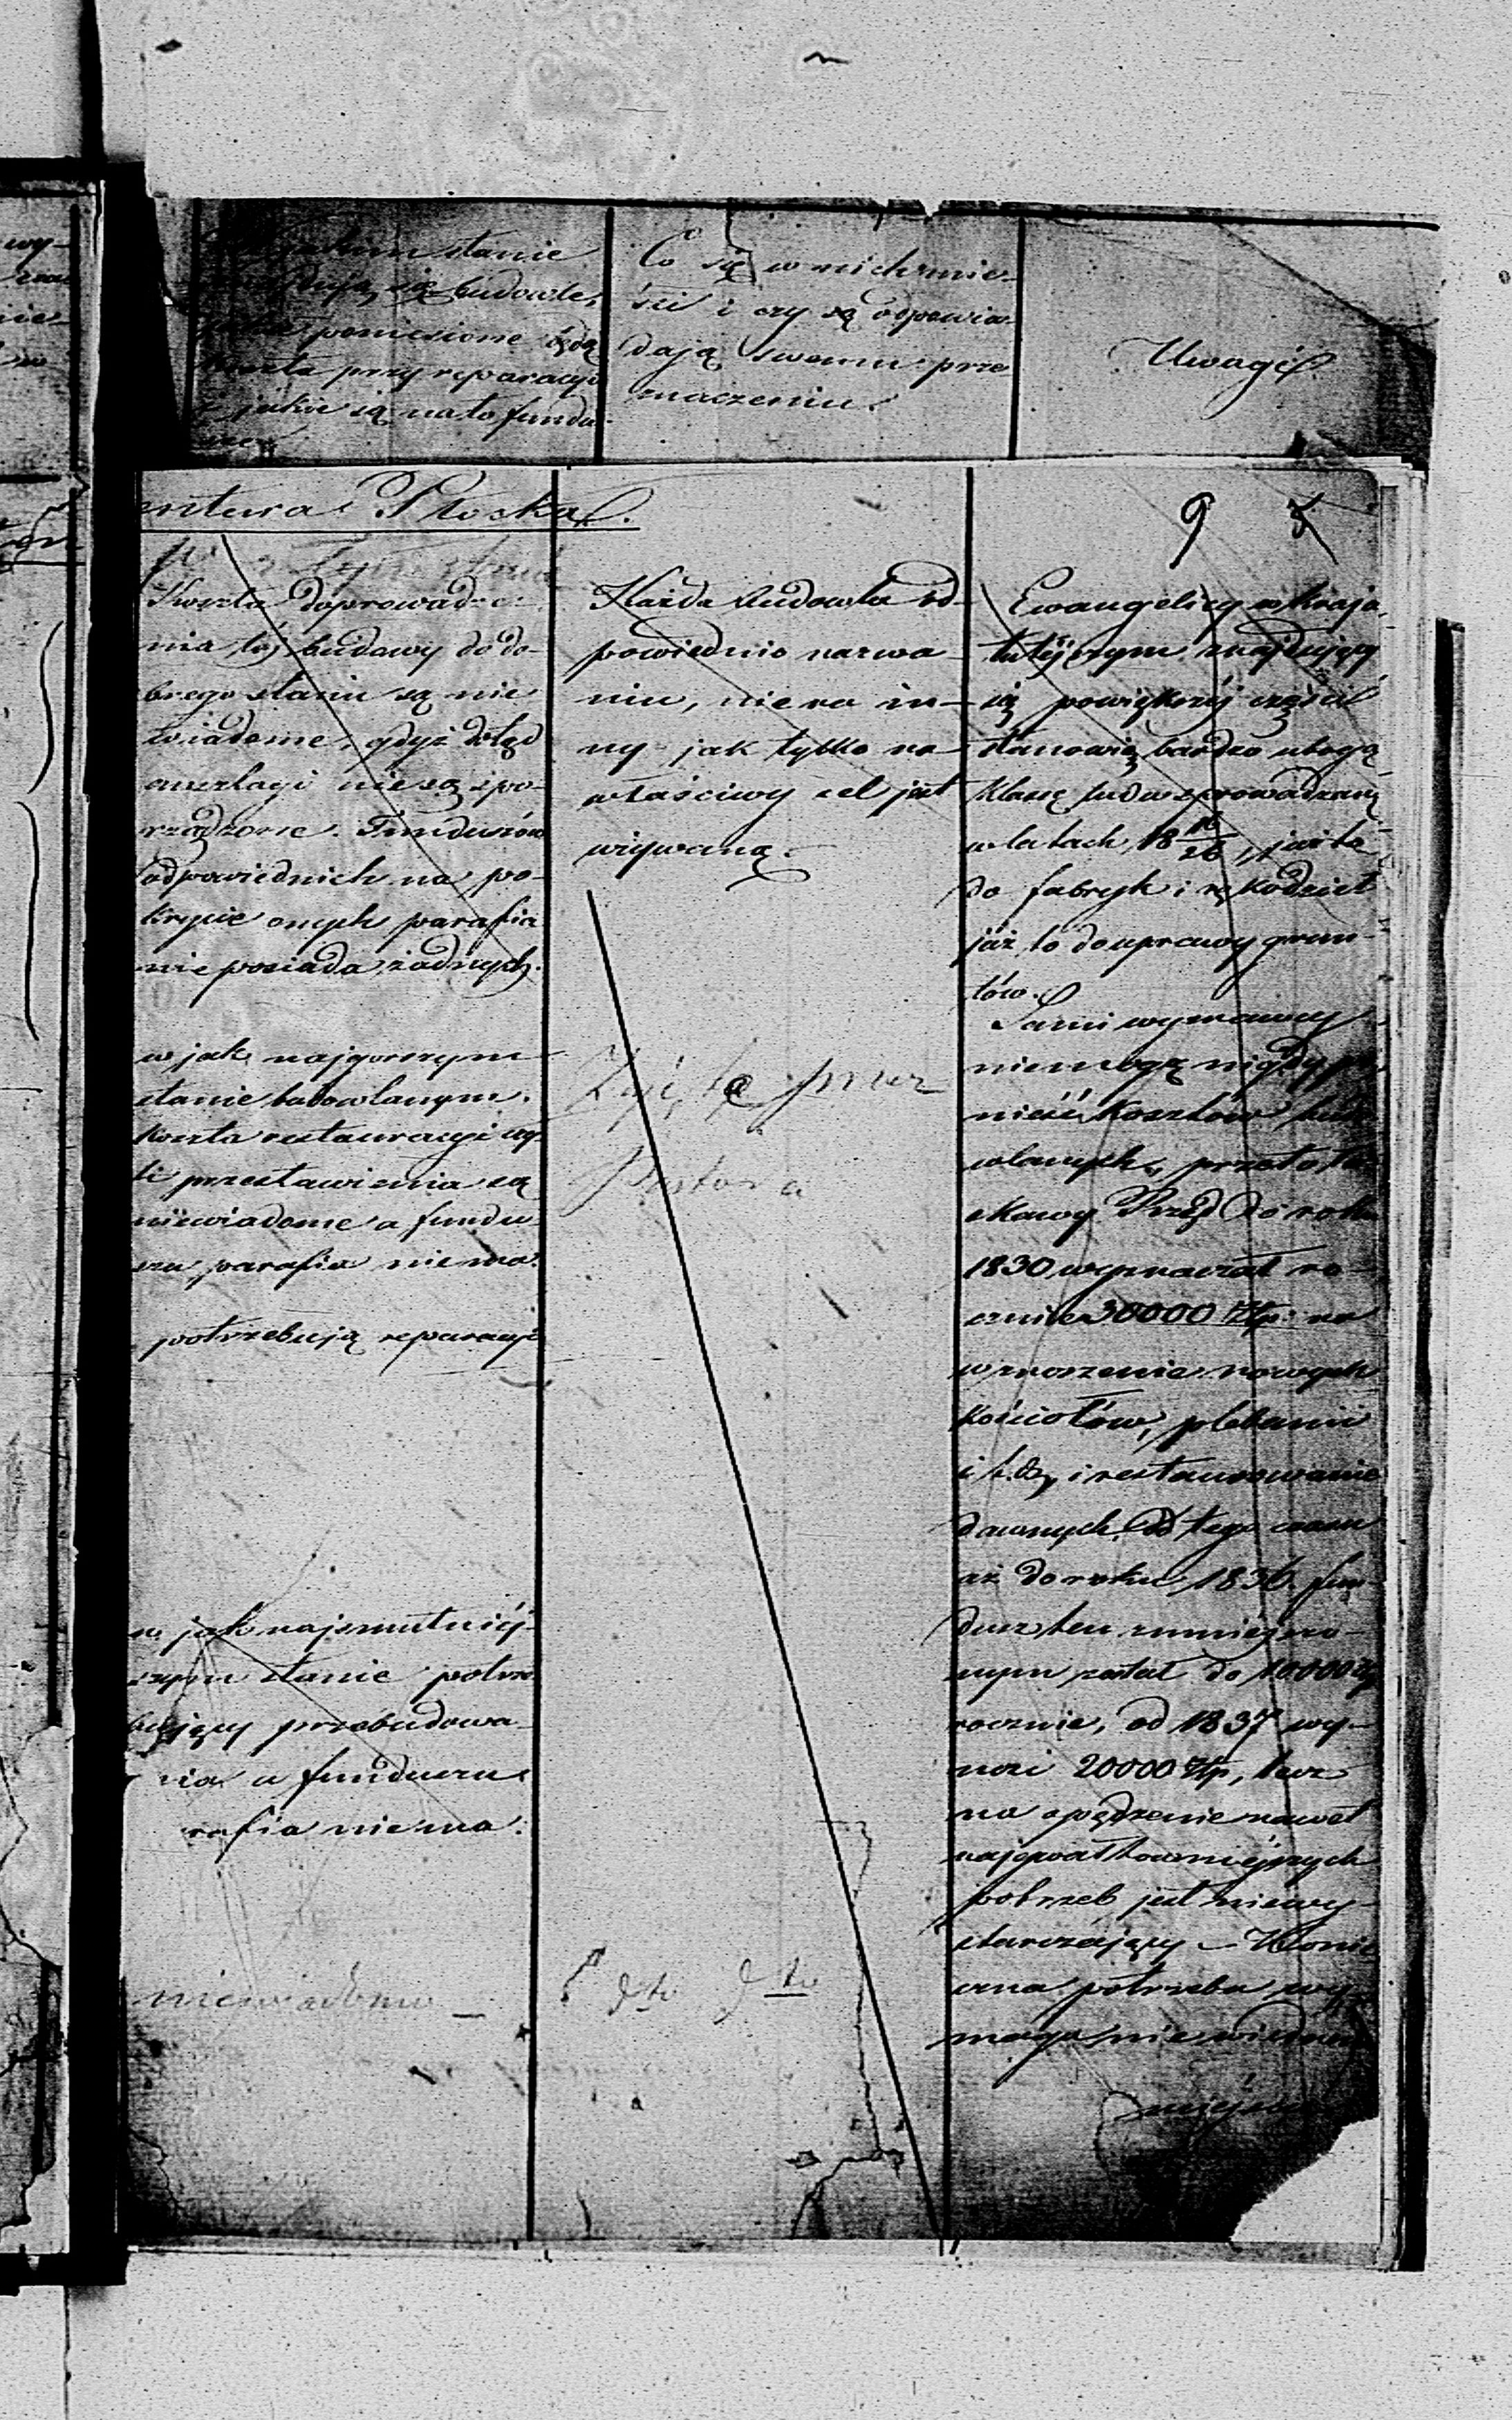 stanie
się budowle,
poniesione będą
koszta przy reparacyi
i jakie są na to fundu-
sze
Co się w nich mie-
ści i czy są odpowia-
dają swemu prze-
znaczeniu.
Uwagi
entura Płocka.
9
Koszta doprowadze-
nia téj budowy do do-
brego stanu są nie
wiadome, gdyż dotąd
anszlagi nie są spo-
rządzone. Funduszów
odpowiednich na po-
krycie onych parafia
nie posiada żadnych.
w jak najgorszym
stanie budowlanym.
Koszta restauracyi czy
li przestawienia są
niewiadome a fundu-
szu parafia niema.
potrzebują reparacyi
w jak najsmutniéj-
szym stanie potrze
bujący przebudowa-
nia a funduszu
rafia niema.
niewiadomo —
Każda budowla od-
powiednio nazwa-
niu, nie na in-
ny jak tylko na
właściwy cel jest
używaną.
Zajęta przez
Pastora
dto dto
Ewangelicy w kraju
tutéjszym znajdujący
się powiększéj części
stanowią bardzo ubogą
klasę ludu sprowadzaną
w latach 18 16/26, już to
do fabryk i rękodzieł
już to do uprawy grun-
tów.
Sami wyznawcy
niemogą nigdy po
nieść kosztów budo
wlanych, przeto ła
skawy Rząd do roku
1830 wyznaczał ro-
cznie 30000 Złp. na
wznoszenie nowych
kościołów, plebanii
i t. d., i restaurowanie
dawnych. Od tego czasu
aż do roku 1836. fun-
dusz ten zmniéjszo-
nym został do 10000 Złp
rocznie, od 1837 wy-
nosi 20000 Złp, lecz
na opędzenie nawet
najgwałtowniéjszych
potrzeb jest niewy-
starczający — Konie
czna potrzeba wy
maga nie